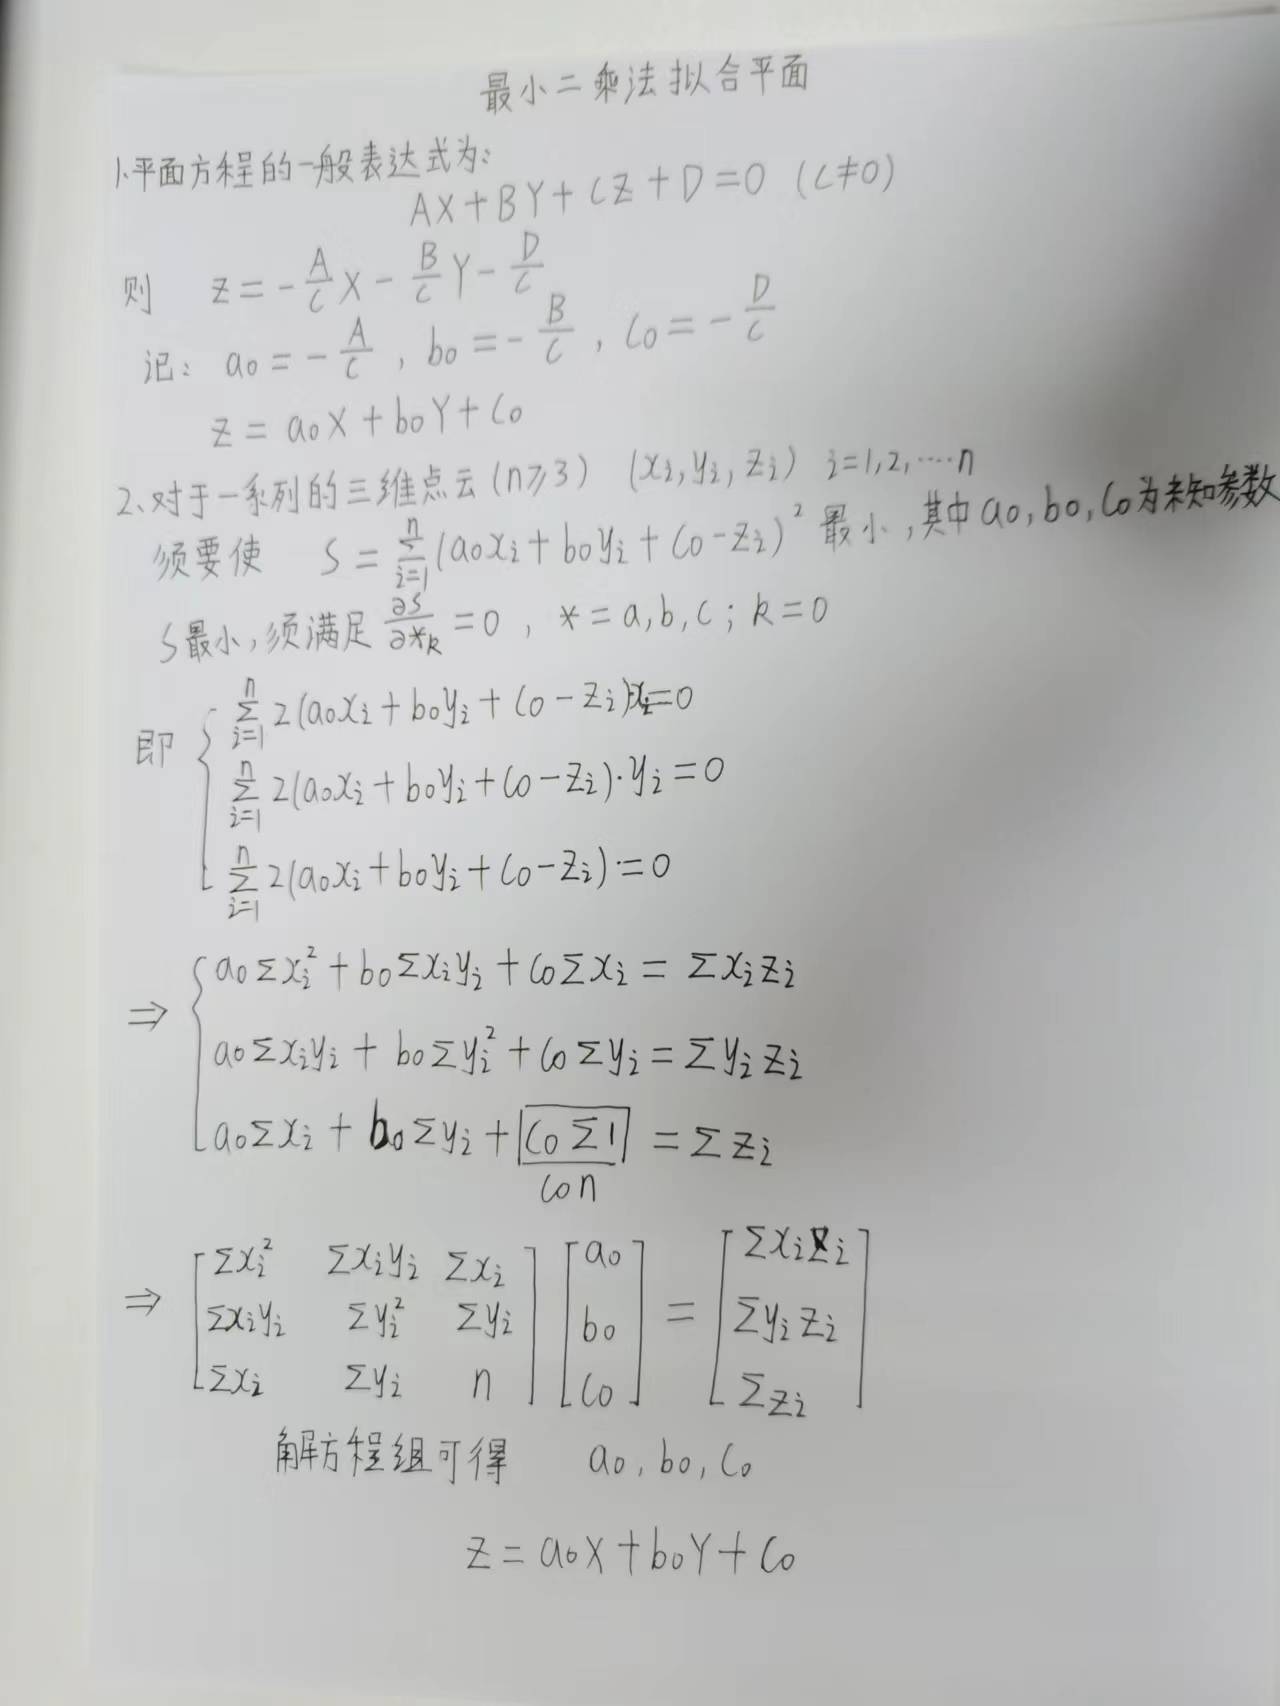 最小二乘法拟合平面
1.平面方程的一般表达式为:
AX+BY+CZ+D=0 (C≠0)
则 Z=-A/C X-B/C Y-D/C
记: a₀=-A/C, b₀=-B/C, C₀=-D/C
Z=a₀X+b₀Y+C₀
2、对于一系列的三维点云(n≥3) (xᵢ,yᵢ,zᵢ) i=1,2,····n
须要使 S=∑ⁿᵢ₌₁(a₀xᵢ+b₀yᵢ+C₀-zᵢ)² 最小,其中a₀,b₀,C₀为未知参数
S最小,须满足 ∂S/∂*ₖ=0, *=a,b,c; k=0
即 { ∑ⁿᵢ₌₁ 2(a₀xᵢ+b₀yᵢ+C₀-zᵢ)·xᵢ=0
∑ⁿᵢ₌₁ 2(a₀xᵢ+b₀yᵢ+C₀-zᵢ)·yᵢ=0
∑ⁿᵢ₌₁ 2(a₀xᵢ+b₀yᵢ+C₀-zᵢ)·=0
⇒ { a₀∑xᵢ²+b₀∑xᵢyᵢ+C₀∑xᵢ=∑xᵢzᵢ
a₀∑xᵢyᵢ+b₀∑yᵢ²+C₀∑yᵢ=∑yᵢzᵢ
a₀∑xᵢ+b₀∑yᵢ+C₀∑1=∑zᵢ
C₀n
⇒ [∑xᵢ² ∑xᵢyᵢ ∑xᵢ] [a₀] = [∑xᵢzᵢ]
[∑xᵢyᵢ ∑yᵢ² ∑yᵢ] [b₀] [∑yᵢzᵢ]
[∑xᵢ ∑yᵢ n] [C₀] [∑zᵢ]
解方程组可得 a₀,b₀,C₀
Z=a₀X+b₀Y+C₀